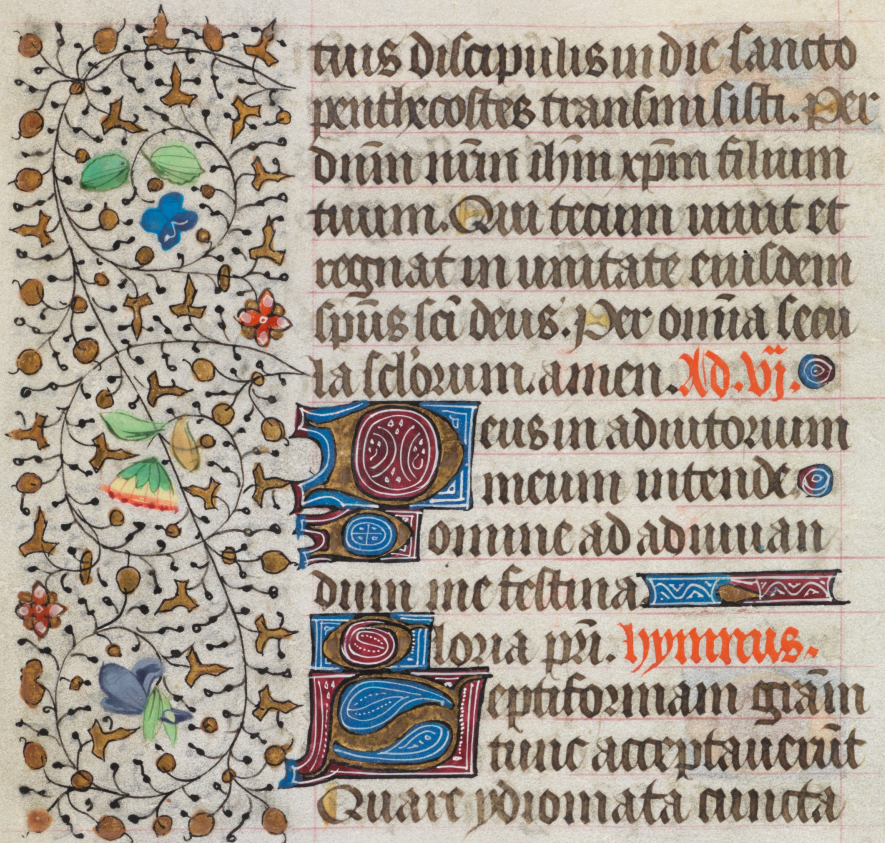 tuis discipulis in die sancto
penthecostes transmisisti. Per
dn̄m nr̄m ih̄m xp̄m filium
tuum. Qui tecum uiuit et
regnat in unitate eiusdem
sp̄us sc̄i deus. Per om̄ia secu
la sc̄lorum. amen. Ad. vj.
Deus in adiutorium
meum intende
Domine ad adiuuan
dum me festina
Gloria pr̄i. hymnus.
Septiformam grām
tunc acceptauerūt
Quare ydiomata cuncta